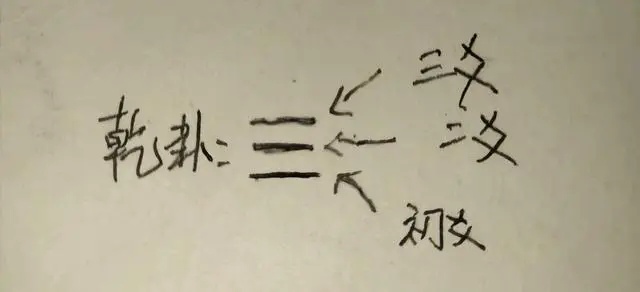 三爻
乾卦: ☰
二爻
初爻